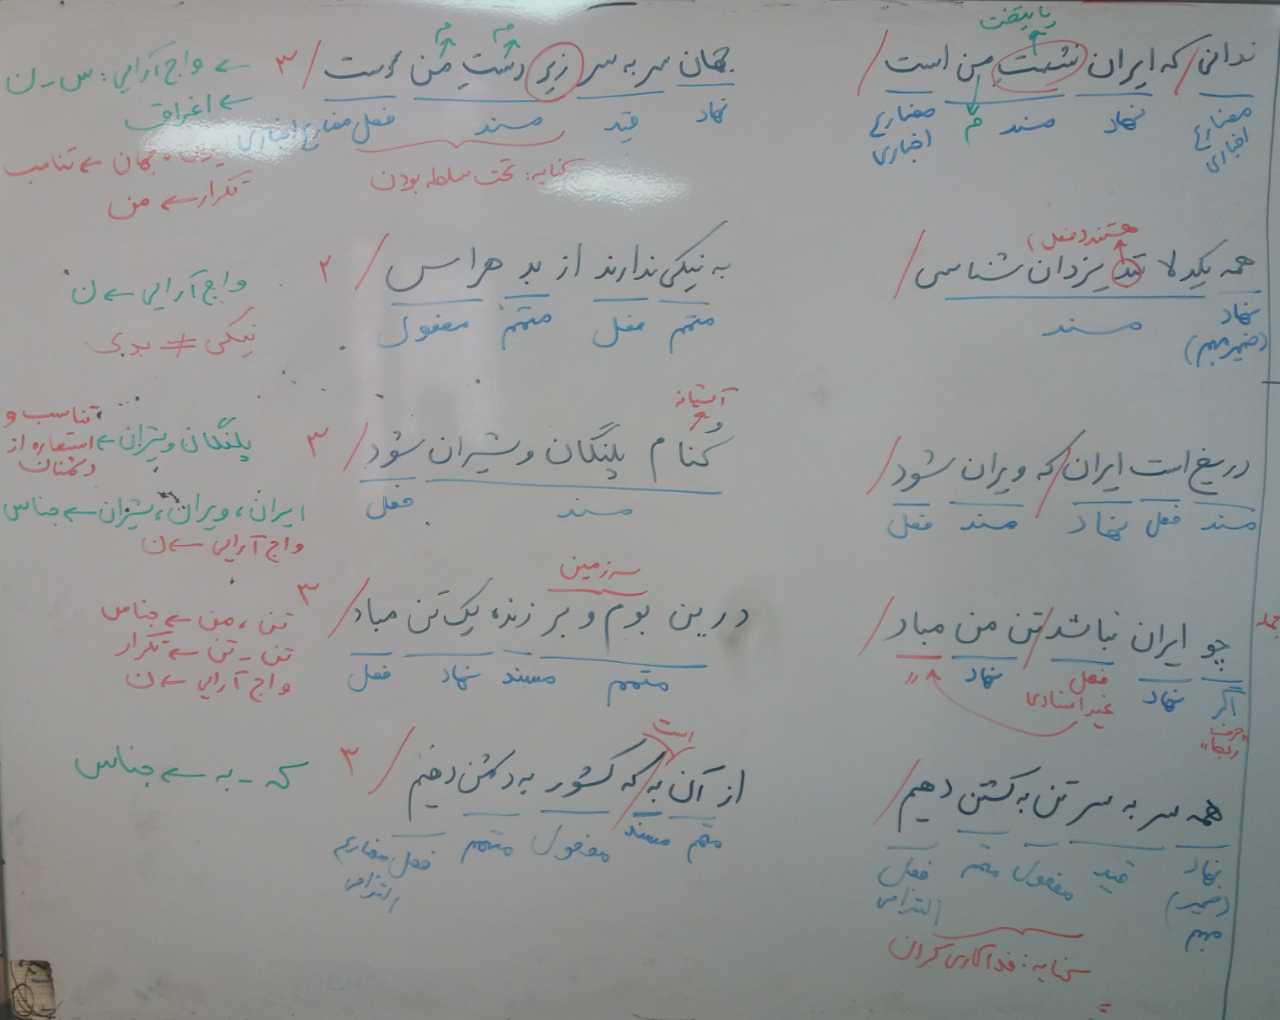 پایتخت
ندانی / که ایران نشست من است / جهان سر به سر زیر دست من است / ۳
م م م
مضارع اخباری نهاد مسند مضارع اخباری نهاد قید مسند فعل مضارع اخباری
کنایه: تحت سلطه بودن
← واج آرایی: س - ن
← اغراق
جهان ← تناسب
تکرار ← من
هستند (فعل)
همه یکدلانند یزدان شناس / به نیکی ندارند از بد هراس / ۲
نهاد (ضمیر مبهم) مسند متمم فعل متمم مفعول
واج آرایی ← ن
نیکی ≠ بدی
آشیانه
دریغ است ایران / که ویران شود / کنام پلنگان و شیران شود / ۳
مسند فعل نهاد مسند فعل مسند فعل
پلنگان و شیران ← تناسب و استعاره از دشمنان
ایران، ویران، شیران ← جناس
واج آرایی ← ن
سرزمین
چو ایران نباشد / تن من مباد / درین بوم و بر زنده یک تن مباد / ۳
اگر "حرف ربط" نهاد فعل غیر اسنادی نهاد " متمم مسند نهاد فعل
تن، من ← جناس
تن - تن ← تکرار
واج آرایی ← ن
است
همه سر به سر تن به کشتن دهیم / از آن به / که کشور به دشمن دهیم / ۳
نهاد (ضمیر) مبهم قید مفعول متمم فعل التزامی متمم مسند مفعول متمم فعل مضارع التزامی
کنایه: فداکاری کردن
که - به ← جناس